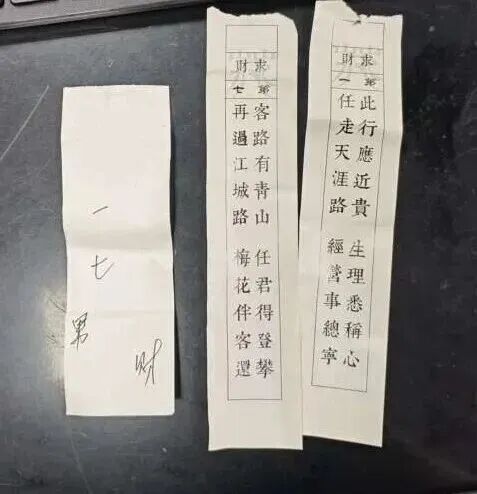 一
七
男
财
求財
第七
客路有青山 任君得登攀
再過江城路 梅花伴客還
求財
第一
此行應近貴 生理悉稱心
任走天涯路 經營事總寧